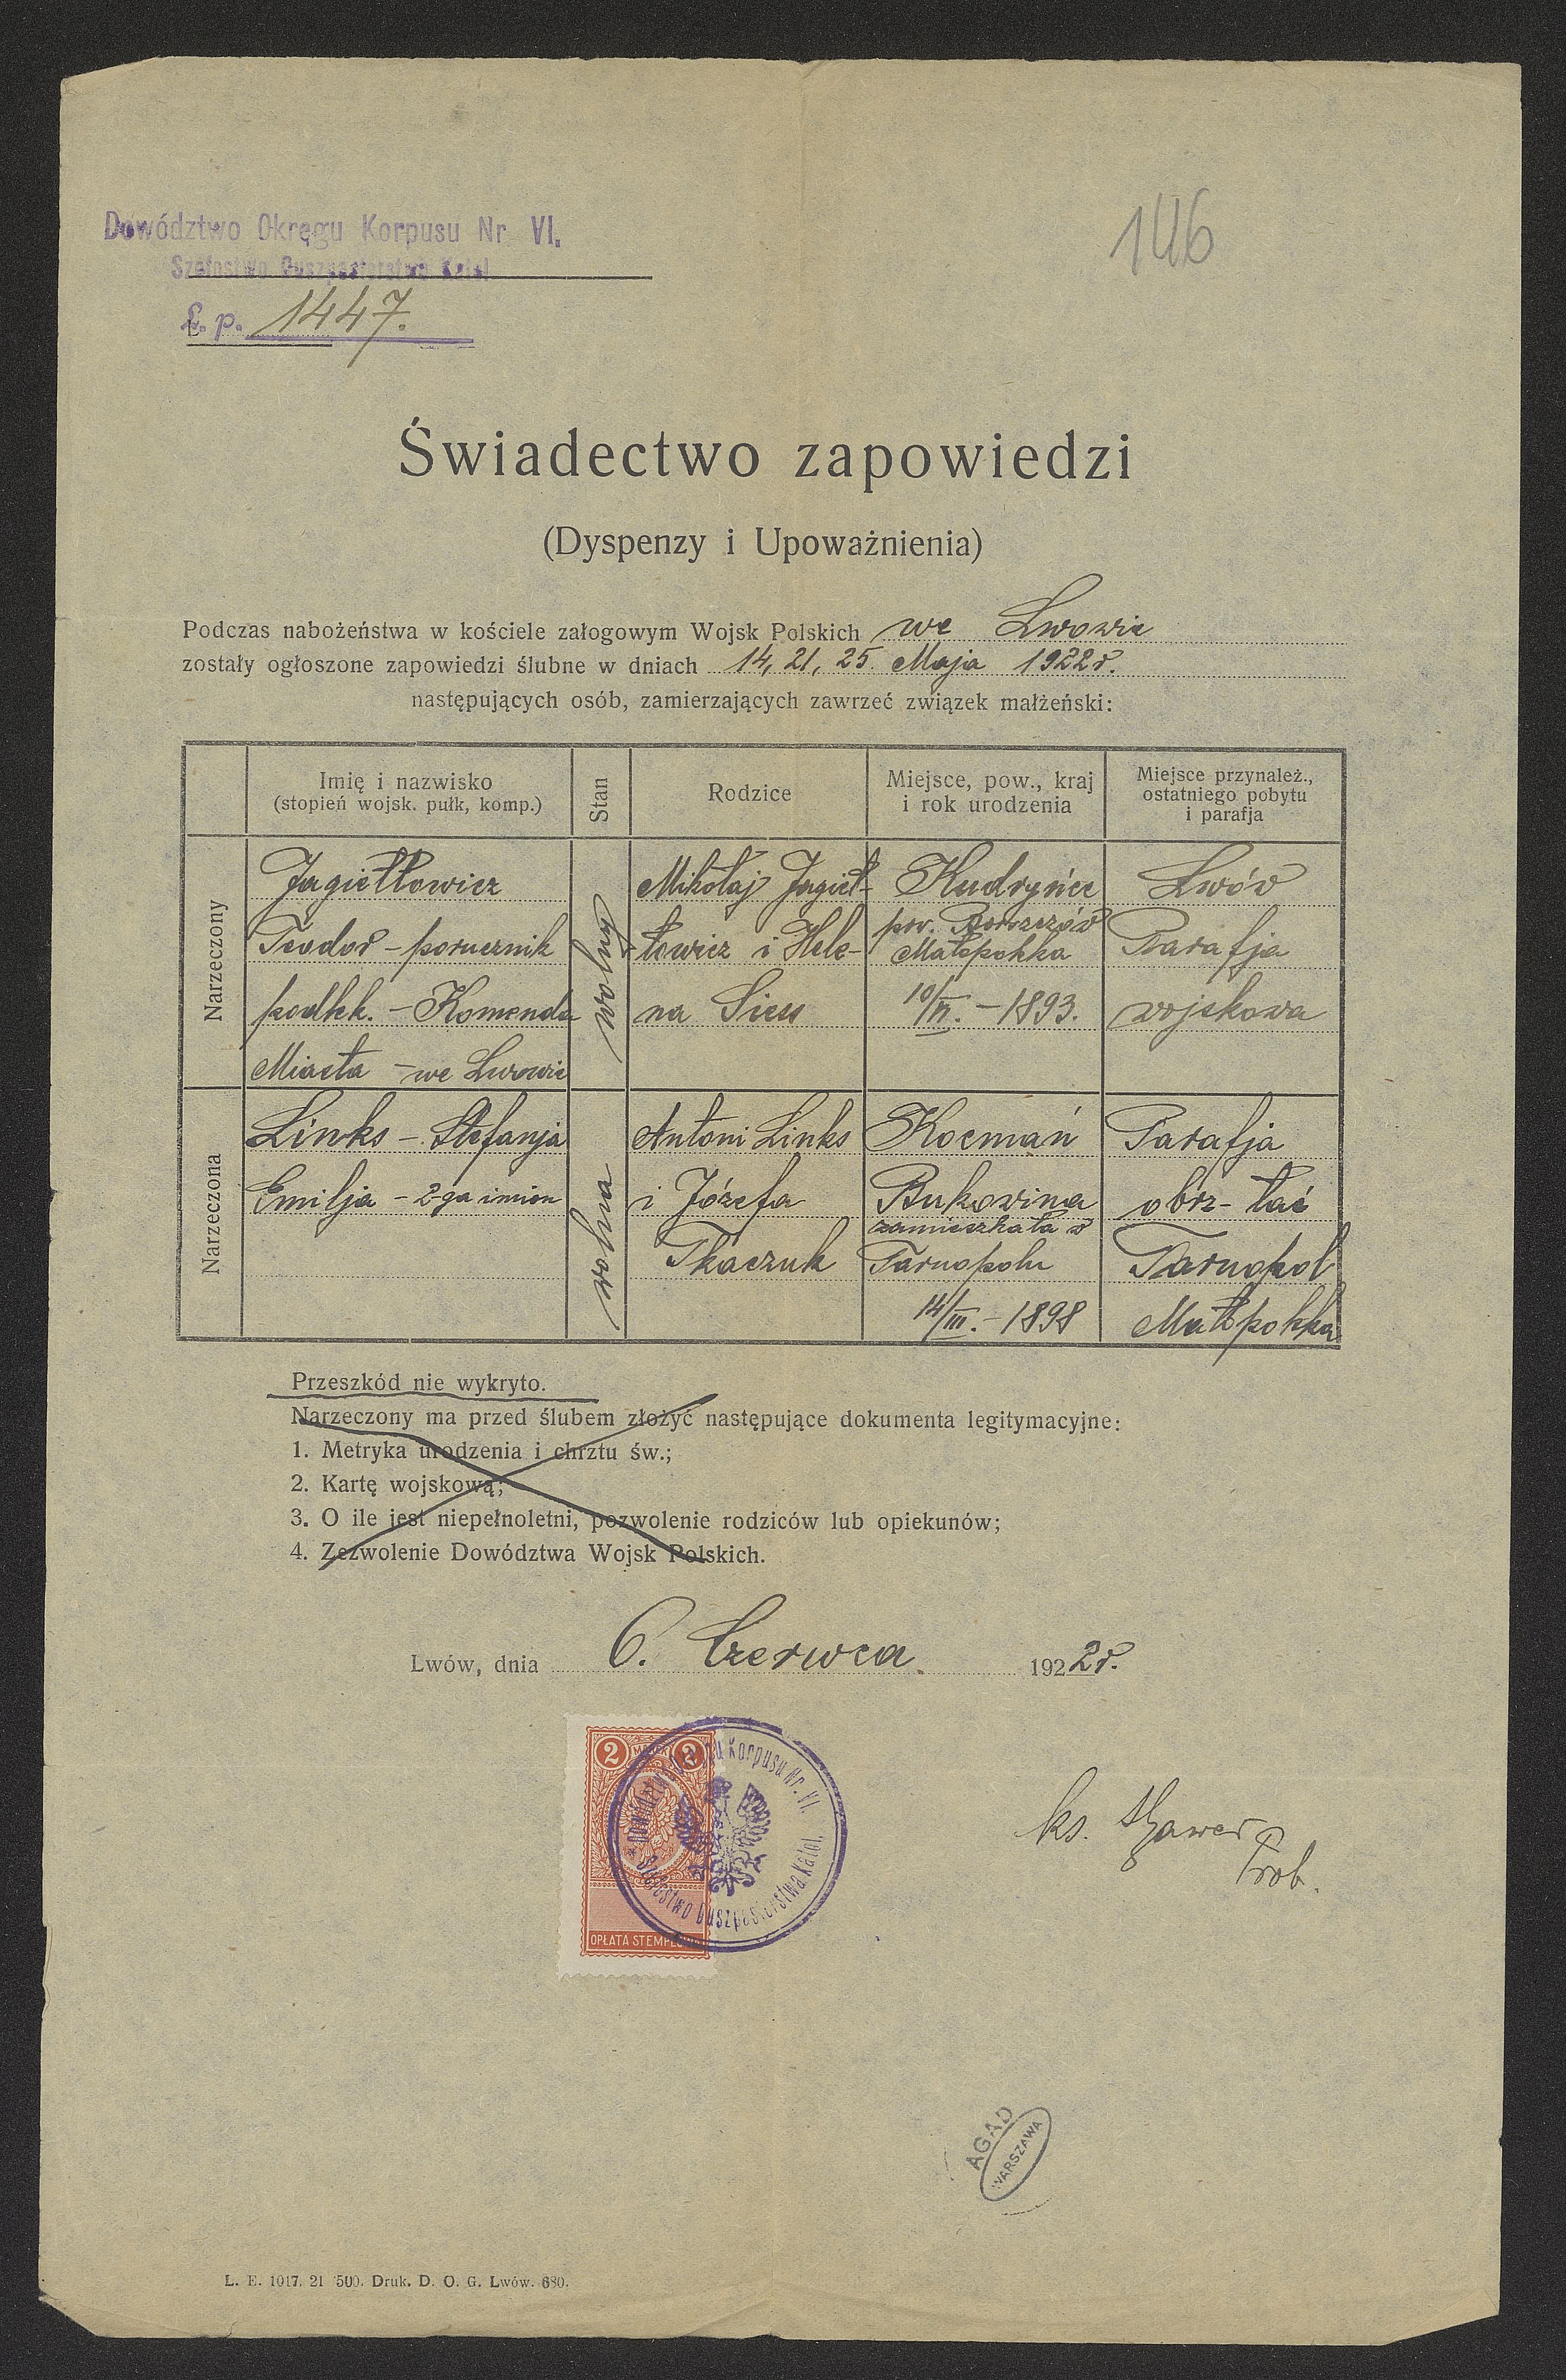 Dowództwo Okręgu Korpusu Nr VI.
Szefostwo Duszpasterstwa Katol
L. p. 1447.
146
Świadectwo zapowiedzi
(Dyspenzy i Upoważnienia)
Podczas nabożeństwa w kościele załogowym Wojsk Polskich we Lwowie
zostały ogłoszone zapowiedzi ślubne w dniach 14, 21, 25. Maja 1922 r.
następujących osób, zamierzających zawrzeć związek małżeński:
Imię i nazwisko
(stopień wojsk. pułk, komp.)
Stan
Rodzice
Miejsce, pow., kraj
i rok urodzenia
Miejsce przynależ.,
ostatniego pobytu
i parafja
Narzeczony
Jagiełłowicz
Teodor – porucznik
podlek. – Komenda
Miasta – we Lwowie
wolny
Mikołaj Jagieł-
łowicz i Hele-
na Siess
Kudryńce
pow. Borszczów
Małopolska
– 1893.
Lwów
Parafja
wojskowa
Narzeczona
Links – Stefanja
Emilja – 2-ga imion
wolna
Antoni Links
i Józefa
Tkaczuk
Kocmań
Bukowina
zamieszkała w
Tarnopolu
14/III. – 1898
Parafja
obrz- łać
Tarnopol
Małopolska
Przeszkód nie wykryto.
Narzeczony ma przed ślubem złożyć następujące dokumenta legitymacyjne:
1. Metryka urodzenia i chrztu św.;
2. Kartę wojskową;
3. O ile jest niepełnoletni, pozwolenie rodziców lub opiekunów;
4. Zezwolenie Dowództwa Wojsk Polskich.
Lwów, dnia 6. Czerwca 1922 r.
2 MARKI 2
OPŁATA STEMPLOWA
Dowództwo Okręgu Korpusu Nr. VI.
Szefostwo Duszpasterstwa Katol.
ks.
Prob.
AGAD
WARSZAWA
L. E. 1017. 21 500. Druk. D. O. G. Lwów. 680.